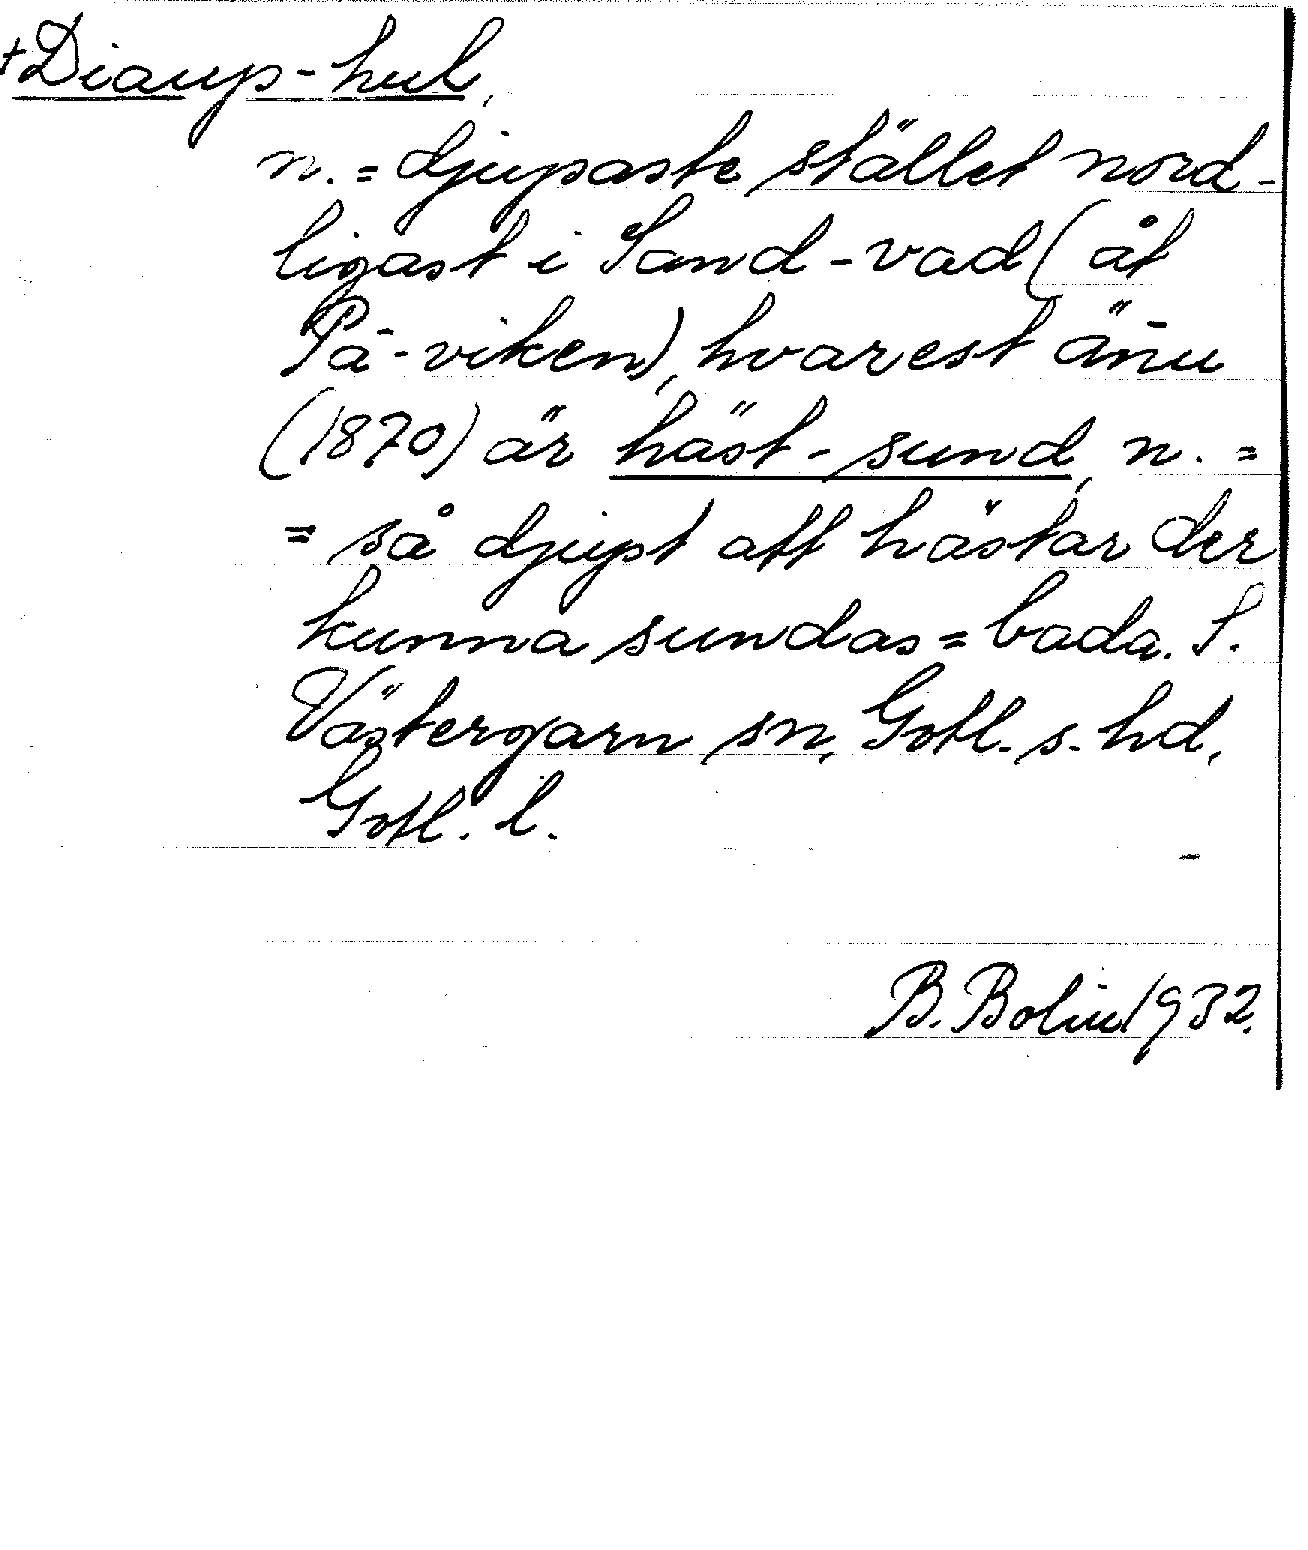 +Diaup-hul,
n. = djupaste stället nord-
ligast i Sand-vad (åt
Pā-viken), hvarest än̄u
(1870) är häst-sund, n. =
= så djupt att hästar der
kunna sundas = bada. S.
Västergarn sn, Gotl. s. hd,
Gotl. l.
B. Bolin 1932.